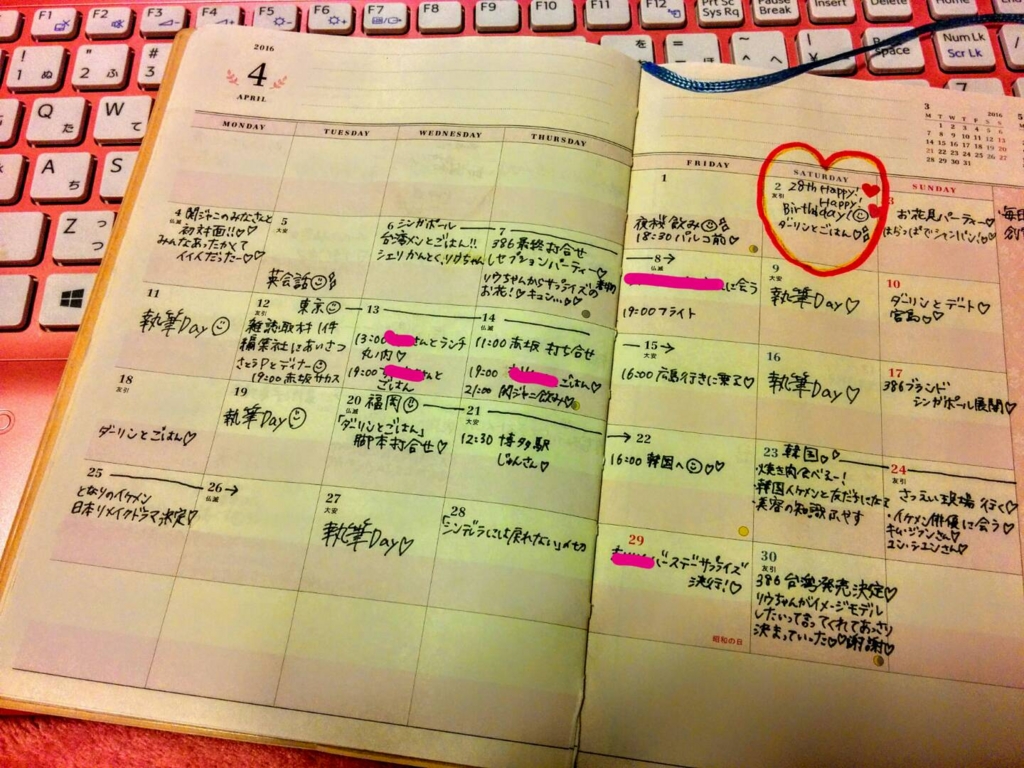 F1
F2
F3
F4
F5
F6
F7
F8
F9
F10
F11
F12
Prt Sc
Sys Rq
Pause
Break
Insert
Delete
Home
Num Lk
Scr Lk
Space
7
!
1 ぬ
"
2 ふ
#
3
Q
た
W
て
A
ち
S
Z
っ
つ
2016
4
APRIL
MONDAY
TUESDAY
WEDNESDAY
THURSDAY
FRIDAY
SATURDAY
SUNDAY
3
2016
M T W T F S S
1 2 3 4 5 6
7 8 9 10 11 12 13
14 15 16 17 18 19 20
21 22 23 24 25 26 27
28 29 30 31
1
夜桜飲み
18:30 パルコ前♡
2
友引
28th Happy!
Happy!
Birthday!
ダーリンとごはん♡
お花見パーティー♡
はらっぱでシャンパン!♡
4
仏滅
関ジャニのみなさんと
初対面!!♡♡
みんなあったかくて
イイ人だったー♡
5
大安
英会話
6 シンガポール
台湾メンとごはん!!
7
386 最終打合せ
レセプションパーティー♡
リウちゃんからサプライズの
お花!キュン…♡
8→
仏滅
に会う
19:00 フライト
9
大安
執筆Day♡
10
ダーリンとデート♡
宮島♡
11
執筆Day
12
友引
東京
雑誌取材 1件
編集社にあいさつ
さとうPとディナー
19:00 赤坂サカス
13
13:00
さんとランチ
丸の内♡
19:00
さんと
ごはん
14
仏滅
11:00 赤坂 打ち合せ
19:00
ごはん♡
21:00 関ジャニ飲み♡
15→
大安
16:00 広島行きに乗る♡
16
執筆Day♡
17
386ブランド
シンガポール展開♡
18
友引
ダーリンとごはん♡
19
執筆Day
20
仏滅
福岡
「ダーリンとごはん」
脚本打合せ♡
21
大安
12:30 博多駅
じゅんさん♡
→ 22
16:00 韓国へ♡♡
23
友引
韓国♡
・焼き肉食べるー!
・韓国イケメンと友だちになる
・美容の知識ふやす
24
友引
さつえい現場行く♡
・イケメン俳優に会う♡
25
となりのイケメン
日本リメイクドラマ決定♡
26→
仏滅
27
大安
執筆Day♡
28
「シンデレラには戻れない」〆切
29
バースデーサプライズ
決行!♡
昭和の日
30
友引
386 台湾発売決定♡
リウちゃんがイメージモデル
したいって言ってくれてあっさり
決まっていった♡♡謝謝♡